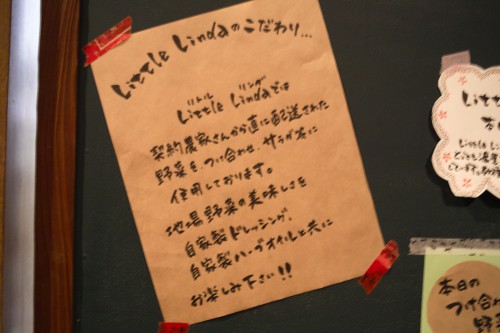 Little Lindaのこだわり...
リトル リンダ
Little Lindaでは
契約農家さんから直に配送された
野菜を、つけ合わせ、サラダ等に
使用しております。
地場野菜の美味しさを
自家製ドレッシング、
自家製ハーブオイルと共に
お楽しみ下さい!!
本日の
つけ合わ
野